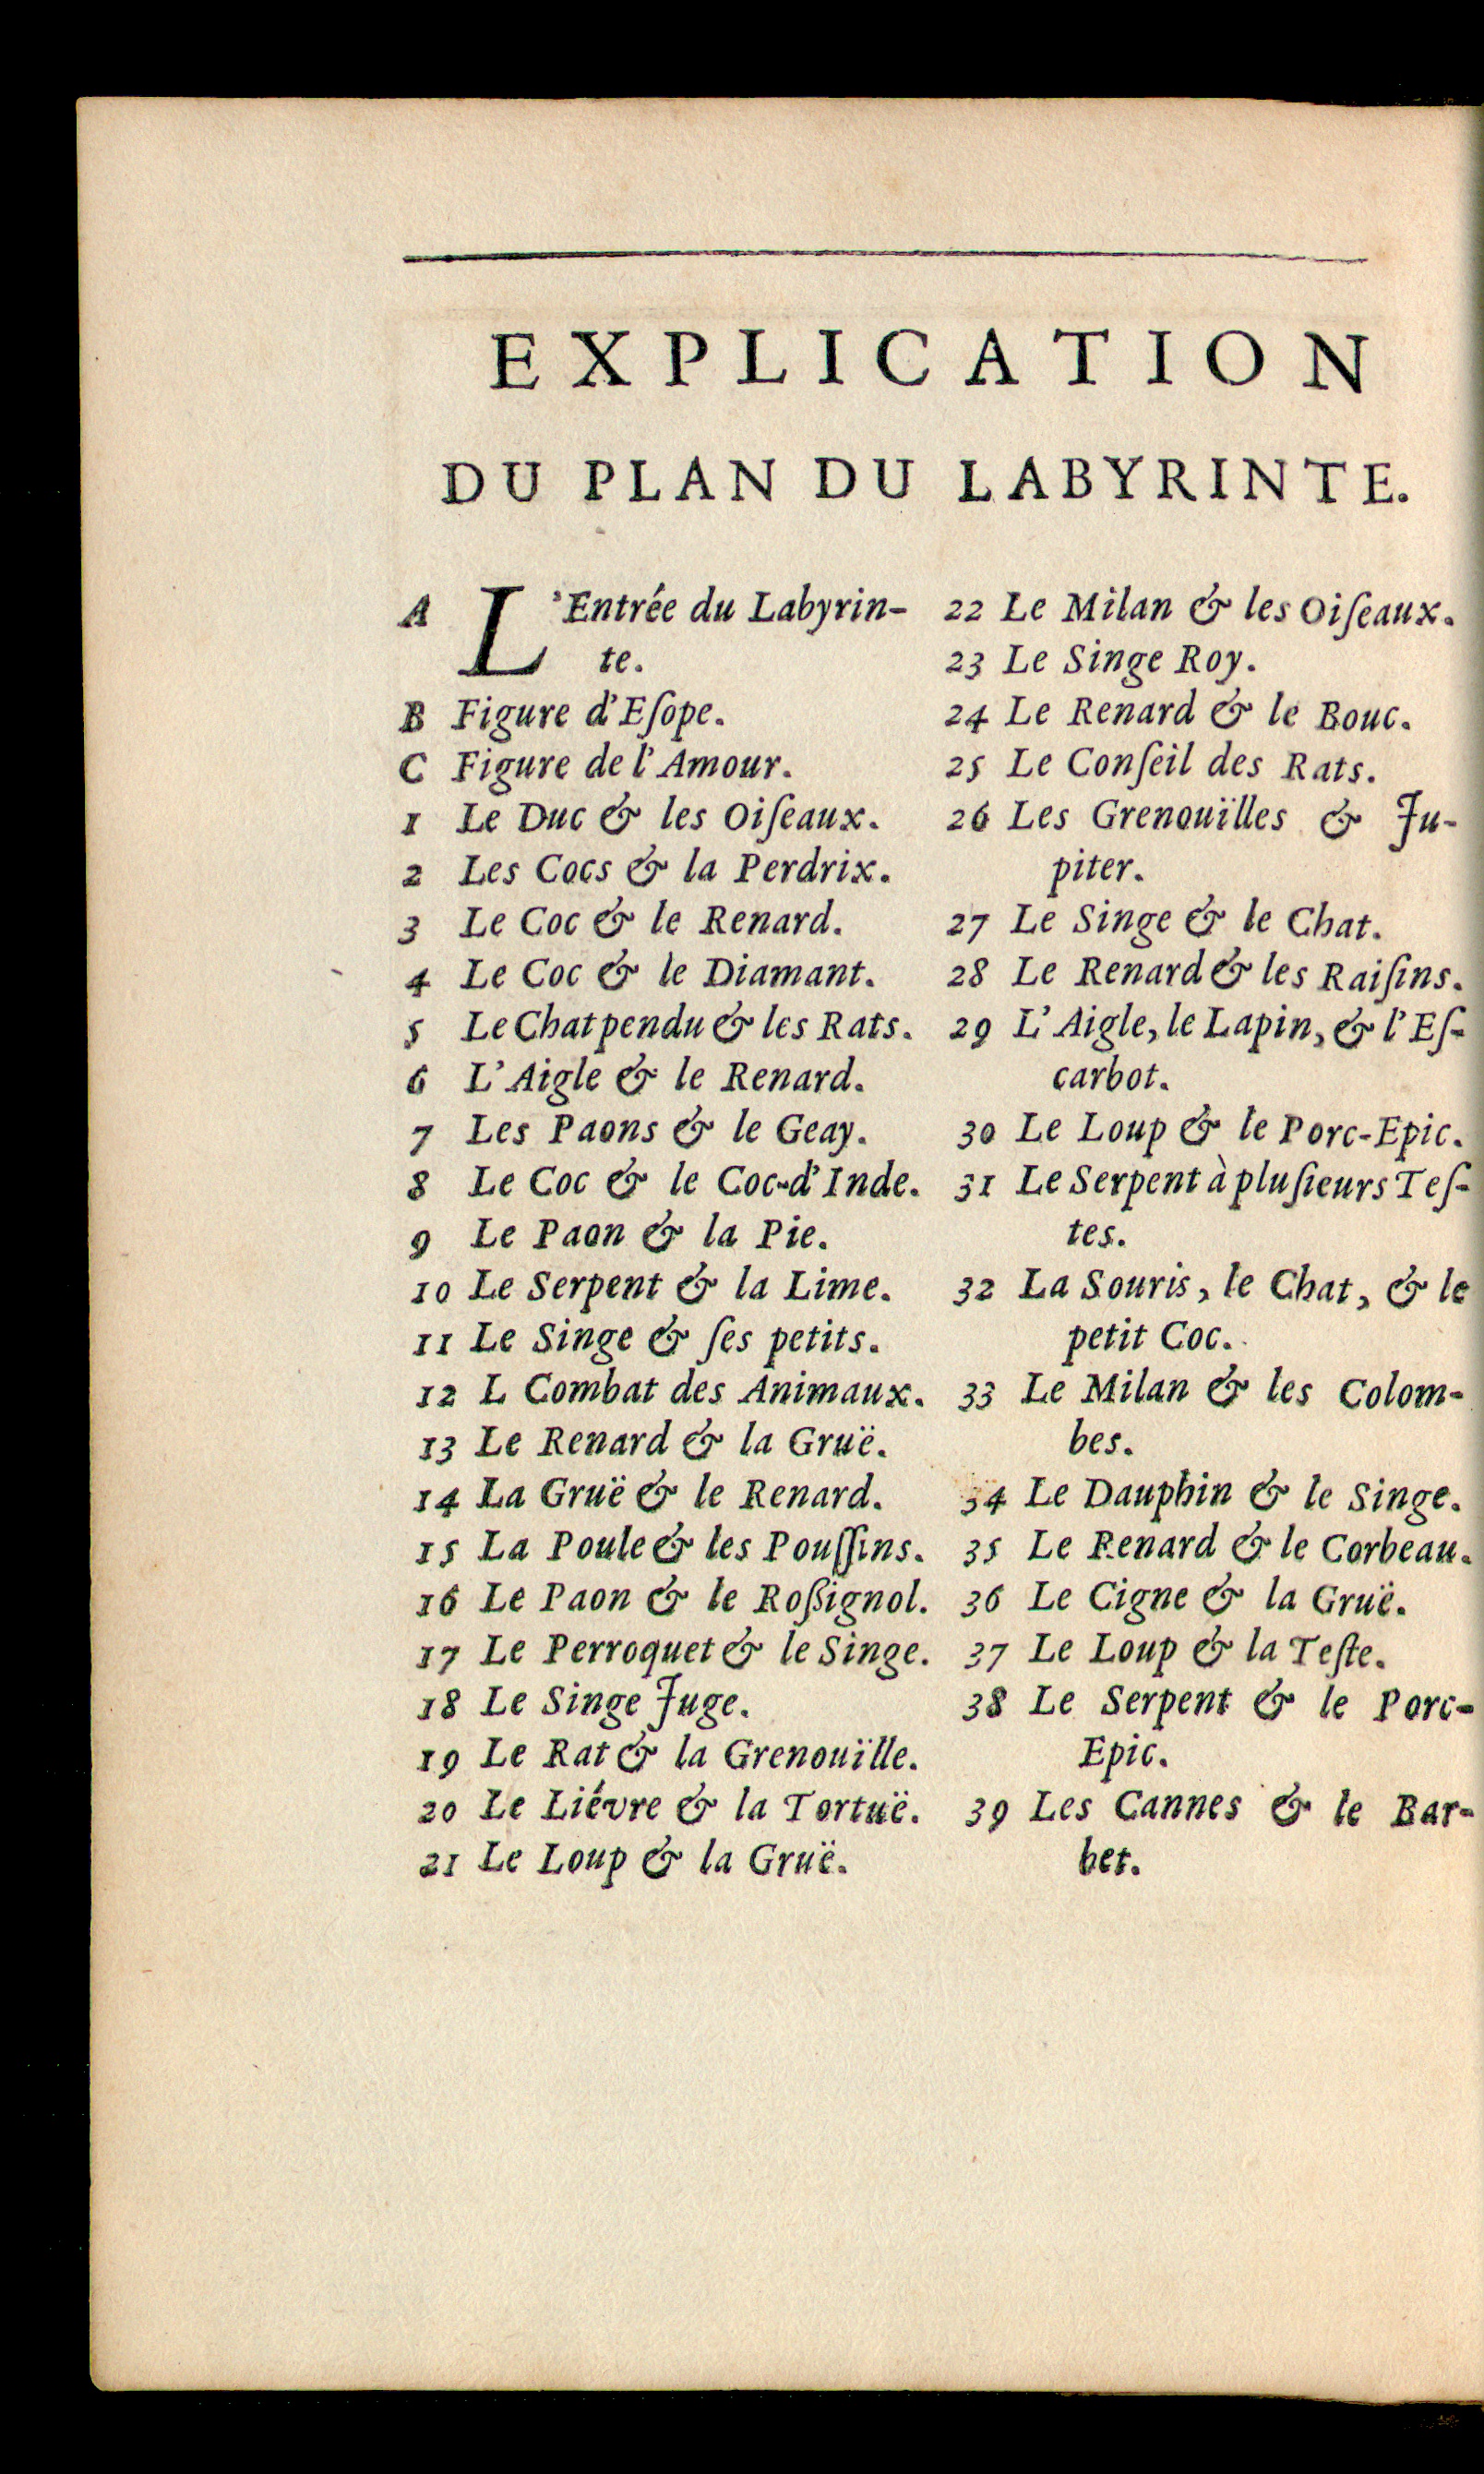 EXPLICATION
DU PLAN DU LABYRINTE.
A L'Entrée du Labyrin-
te.
B Figure d'Eſope.
C Figure de l'Amour.
1 Le Duc & les Oiſeaux.
2 Les Cocs & la Perdrix.
3 Le Coc & le Renard.
4 Le Coc & le Diamant.
5 Le Chat pendu & les Rats.
6 L'Aigle & le Renard.
7 Les Paons & le Geay.
8 Le Coc & le Coc-d'Inde.
9 Le Paon & la Pie.
10 Le Serpent & la Lime.
11 Le Singe & ſes petits.
12 L Combat des Animaux.
13 Le Renard & la Gruë.
14 La Gruë & le Renard.
15 La Poule & les Pouſſins.
16 Le Paon & le Roßignol.
17 Le Perroquet & le Singe.
18 Le Singe Juge.
19 Le Rat & la Grenouïlle.
20 Le Liévre & la Tortuë.
21 Le Loup & la Gruë.
22 Le Milan & les Oiſeaux.
23 Le Singe Roy.
24 Le Renard & le Bouc.
25 Le Conſeil des Rats.
26 Les Grenouïlles & Ju-
piter.
27 Le Singe & le Chat.
28 Le Renard & les Raiſins.
29 L'Aigle, le Lapin, & l'Eſ-
carbot.
30 Le Loup & le Porc-Epic.
31 Le Serpent à pluſieurs Teſ-
tes.
32 La Souris, le Chat, & le
petit Coc.
33 Le Milan & les Colom-
bes.
34 Le Dauphin & le Singe.
35 Le Renard & le Corbeau.
36 Le Cigne & la Gruë.
37 Le Loup & la Teſte.
38 Le Serpent & le Porc-
Epic.
39 Les Cannes & le Bar-
bet.